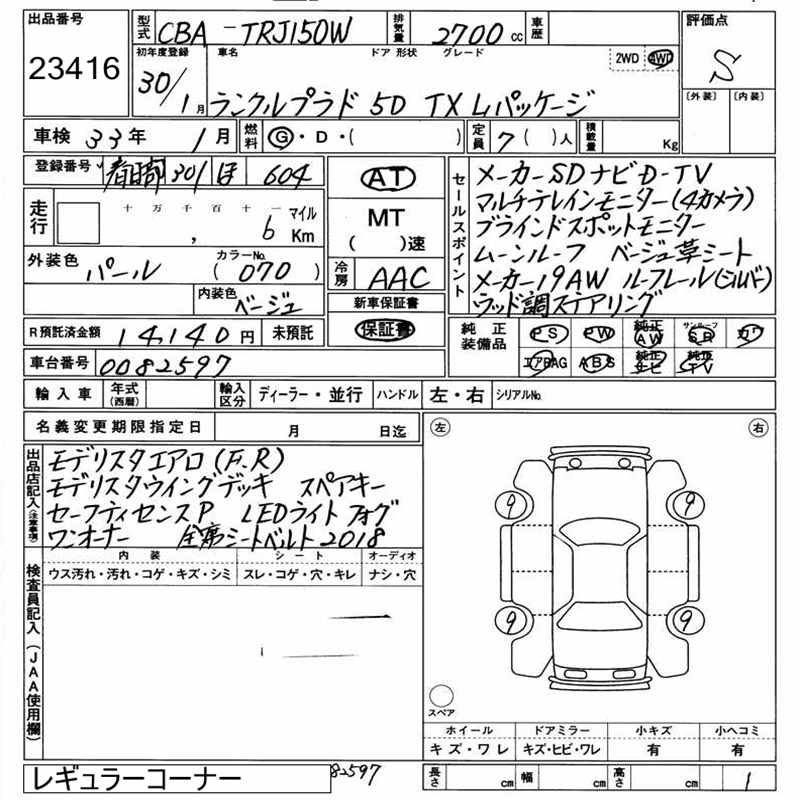 出品番号 型式 CBA-TRJ150W 排気量 2700 cc 車歴 評価点
23416 S
初年度登録 車名 ドア 形状 グレード 2WD 4WD
30/1月 ランクルプラド 5D TX Lパッケージ
[外装] [内装]
車検 33年 1月 燃料 G・D・( ) 定員 7( )人 積載量 Kg
登録番号 春日部 301 ほ 604
AT
走行 十 万 千 百 十 一 マイル
, 6 Km
MT
( )速
外装色 パール カラーNo. (070)
冷房 AAC
内装色 ベージュ
新車保証書
保証書
R預託済金額 14,140 円 未預託
車台番号 0082597
セールスポイント
メーカーSDナビD-TV
マルチテレインモニター(4カメラ)
ブラインドスポットモニター
ムーンルーフ ベージュ革シート
メーカー19AW ルーフレール(シルバ)
ウッド調ステアリング
純正装備品 PS PW 純正AW サンルーフ SR カワ
エアBAG ABS 純正ナビ 純正TV
輸入車 年式(西暦) 輸入区分 ディーラー・並行 ハンドル 左・右 シリアルNo.
名義変更期限指定日 月 日迄
出品店記入(注意事項)
モデリスタエアロ(F.R)
モデリスタウイングデッキ スペアキー
セーフティセンスP LEDライト フォグ
ワンオーナー 全席シートベルト2018
検査員記入(JAA使用欄)
内装 シート オーディオ
ウス汚れ・汚れ・コゲ・キズ・シミ スレ・コゲ・穴・キレ ナシ・穴
左 右
9 9
9 9
スペア
ホイール ドアミラー 小キズ 小ヘコミ
キズ・ワレ キズ・ヒビ・ワレ 有 有
レギュラーコーナー 82597
長さ cm 幅 cm 高さ cm 1